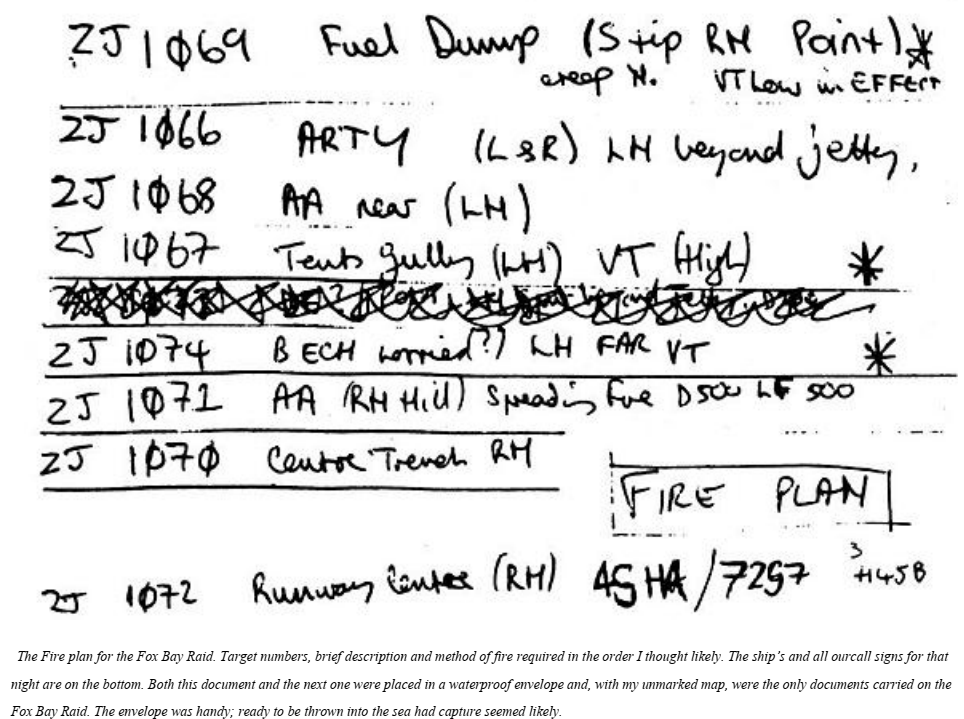 ZJ 1Ø69 Fuel Dump (Stip RH Point)*
creep N. VT Low in EFFECT
ZJ 1Ø66 ARTY (L&R) LH beyond jetty,
ZJ 1Ø68 AA near (LH)
ZJ 1Ø67 Tents gulley (LH) VT (High) *
ZJ 1Ø74 BECH worried(?) LH FAR VT *
ZJ 1Ø71 AA (RH Hill) Spreading Fire D500 500
ZJ 1Ø7Ø Centre Trench RH
FIRE PLAN
ZJ 1Ø72 Runway Centre (RH) 4SHA/7257
The Fire plan for the Fox Bay Raid. Target numbers, brief description and method of fire required in the order I thought likely. The ship's and all ourcall signs for that
night are on the bottom. Both this document and the next one were placed in a waterproof envelope and, with my unmarked map, were the only documents carried on the
Fox Bay Raid. The envelope was handy; ready to be thrown into the sea had capture seemed likely.